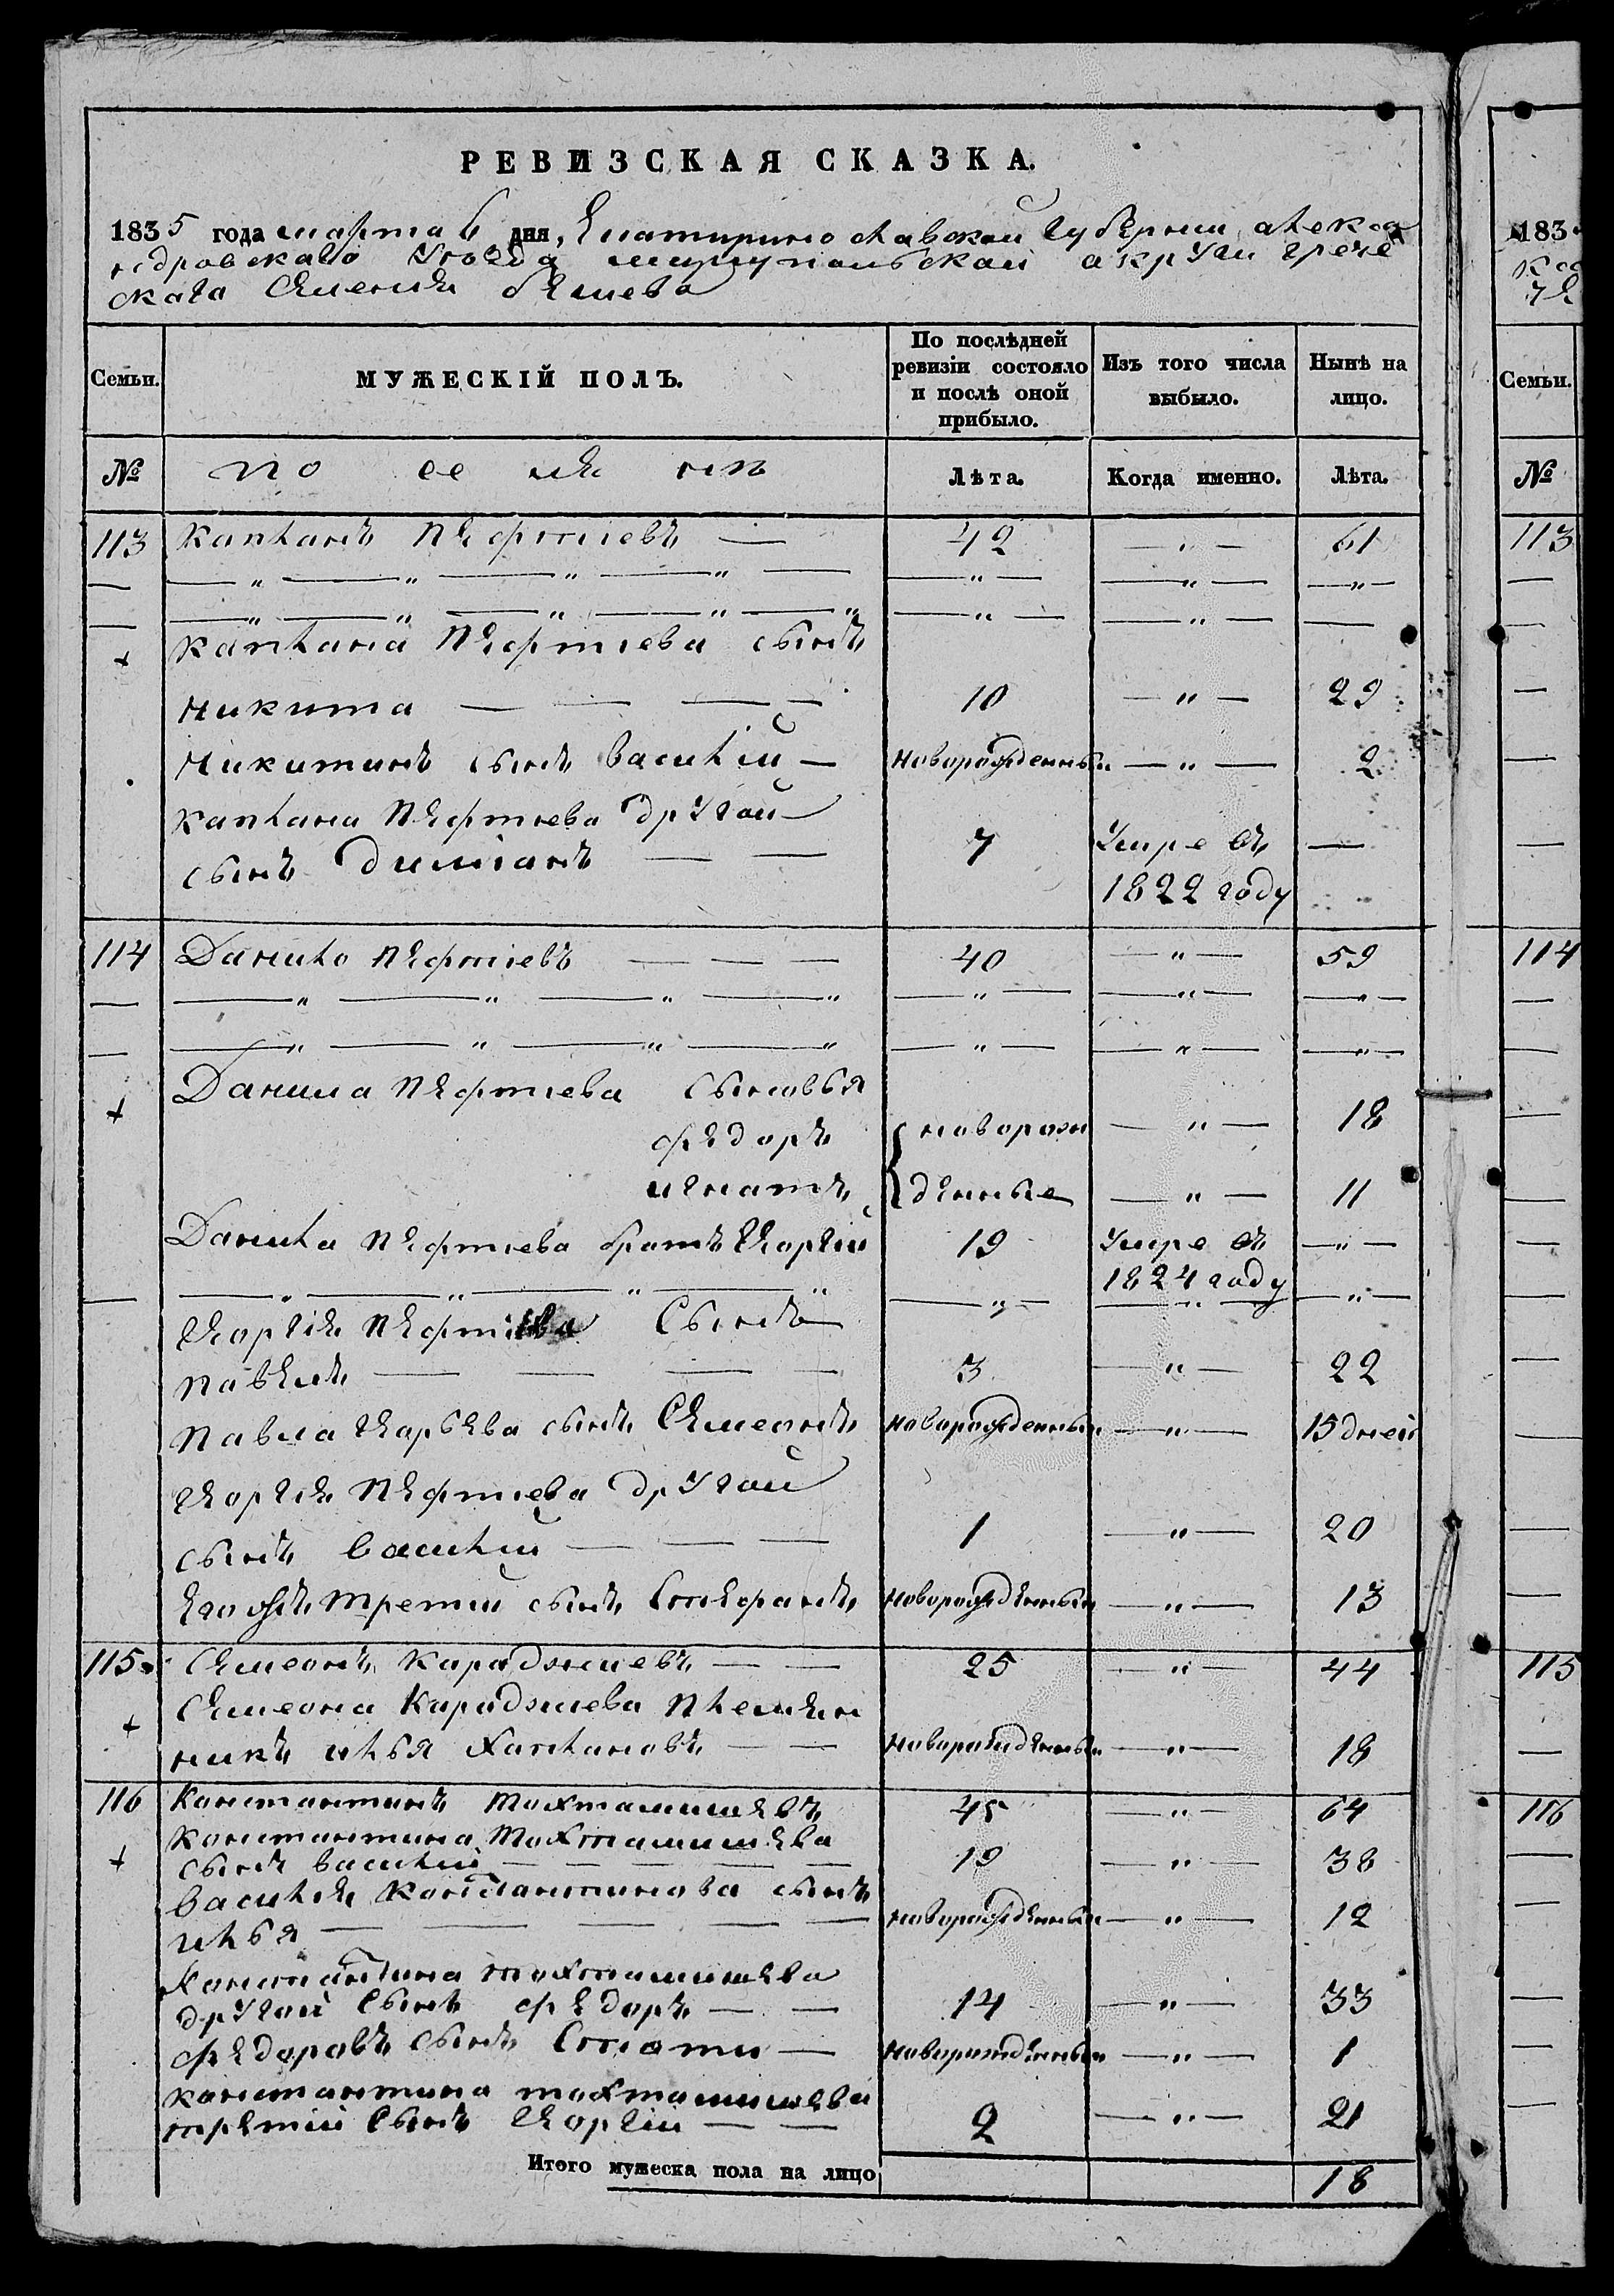 РЕВИЗСКАЯ СКАЗКА.
1835 года марта 6 дня, Екатиринославской губернии алекса
ндровскаго Уезда мариупольской акрУги грече
скаго Селения бешева
Семьи. МУЖЕСКІЙ ПОЛЪ. По послѣдней ревизіи состояло и послѣ оной прибыло. Изъ того числа выбыло. Нынѣ на лицо.
№ по се ля нъ Лѣта. Когда именно. Лѣта.
113 капланъ Пефтіевъ — 42 — „ — 61
каплана Пефтіева сынъ
никита — — — — 10 — „ — 29
никитинъ сынъ василій — новорожденный — „ — 2
каплана Пефтіева дрУгой
сынъ диміанъ — — 7 Умре въ —
1822 году
114 Данило пефтіевъ — — — 40 — „ — 59
Данила пефтіева сыновья
федоръ новорож — „ — 18
игнатъ денные — „ — 11
Данила пефтіева братъ Георгій 19 Умре въ — „ —
1824 году
Георгія пефтіева Сынъ
павелъ — — — — 3 — „ — 22
павла Георгьева сынъ Семеонъ новорожденный — „ — 15 дней
Георгія пефтіева дрУгой
сынъ василій — — — 1 — „ — 20
Егожъ третій сынъ Стефанъ новорожденный — „ — 13
115 Семеонъ караджиевъ — — 25 — „ — 44
Семеона Караджиева племян
никъ илья каплановъ — — новорожденный — „ — 18
116 Константинъ тохтамишевъ 45 — „ — 64
константина тохтамишева
сынъ василий — — — — — 19 — „ — 38
василія константинова сынъ
илья — — — — — новорожденный — „ — 12
константина тохтамишева
дрУгой сынъ федоръ — — 14 — „ — 33
федоровъ сынъ — новорожденный — „ — 1
константина тохтамишева
третій сынъ Георгій — — 2 — „ — 21
Итого мужеска пола на лицо 18
183
Семьи.
№
113
114
115
116